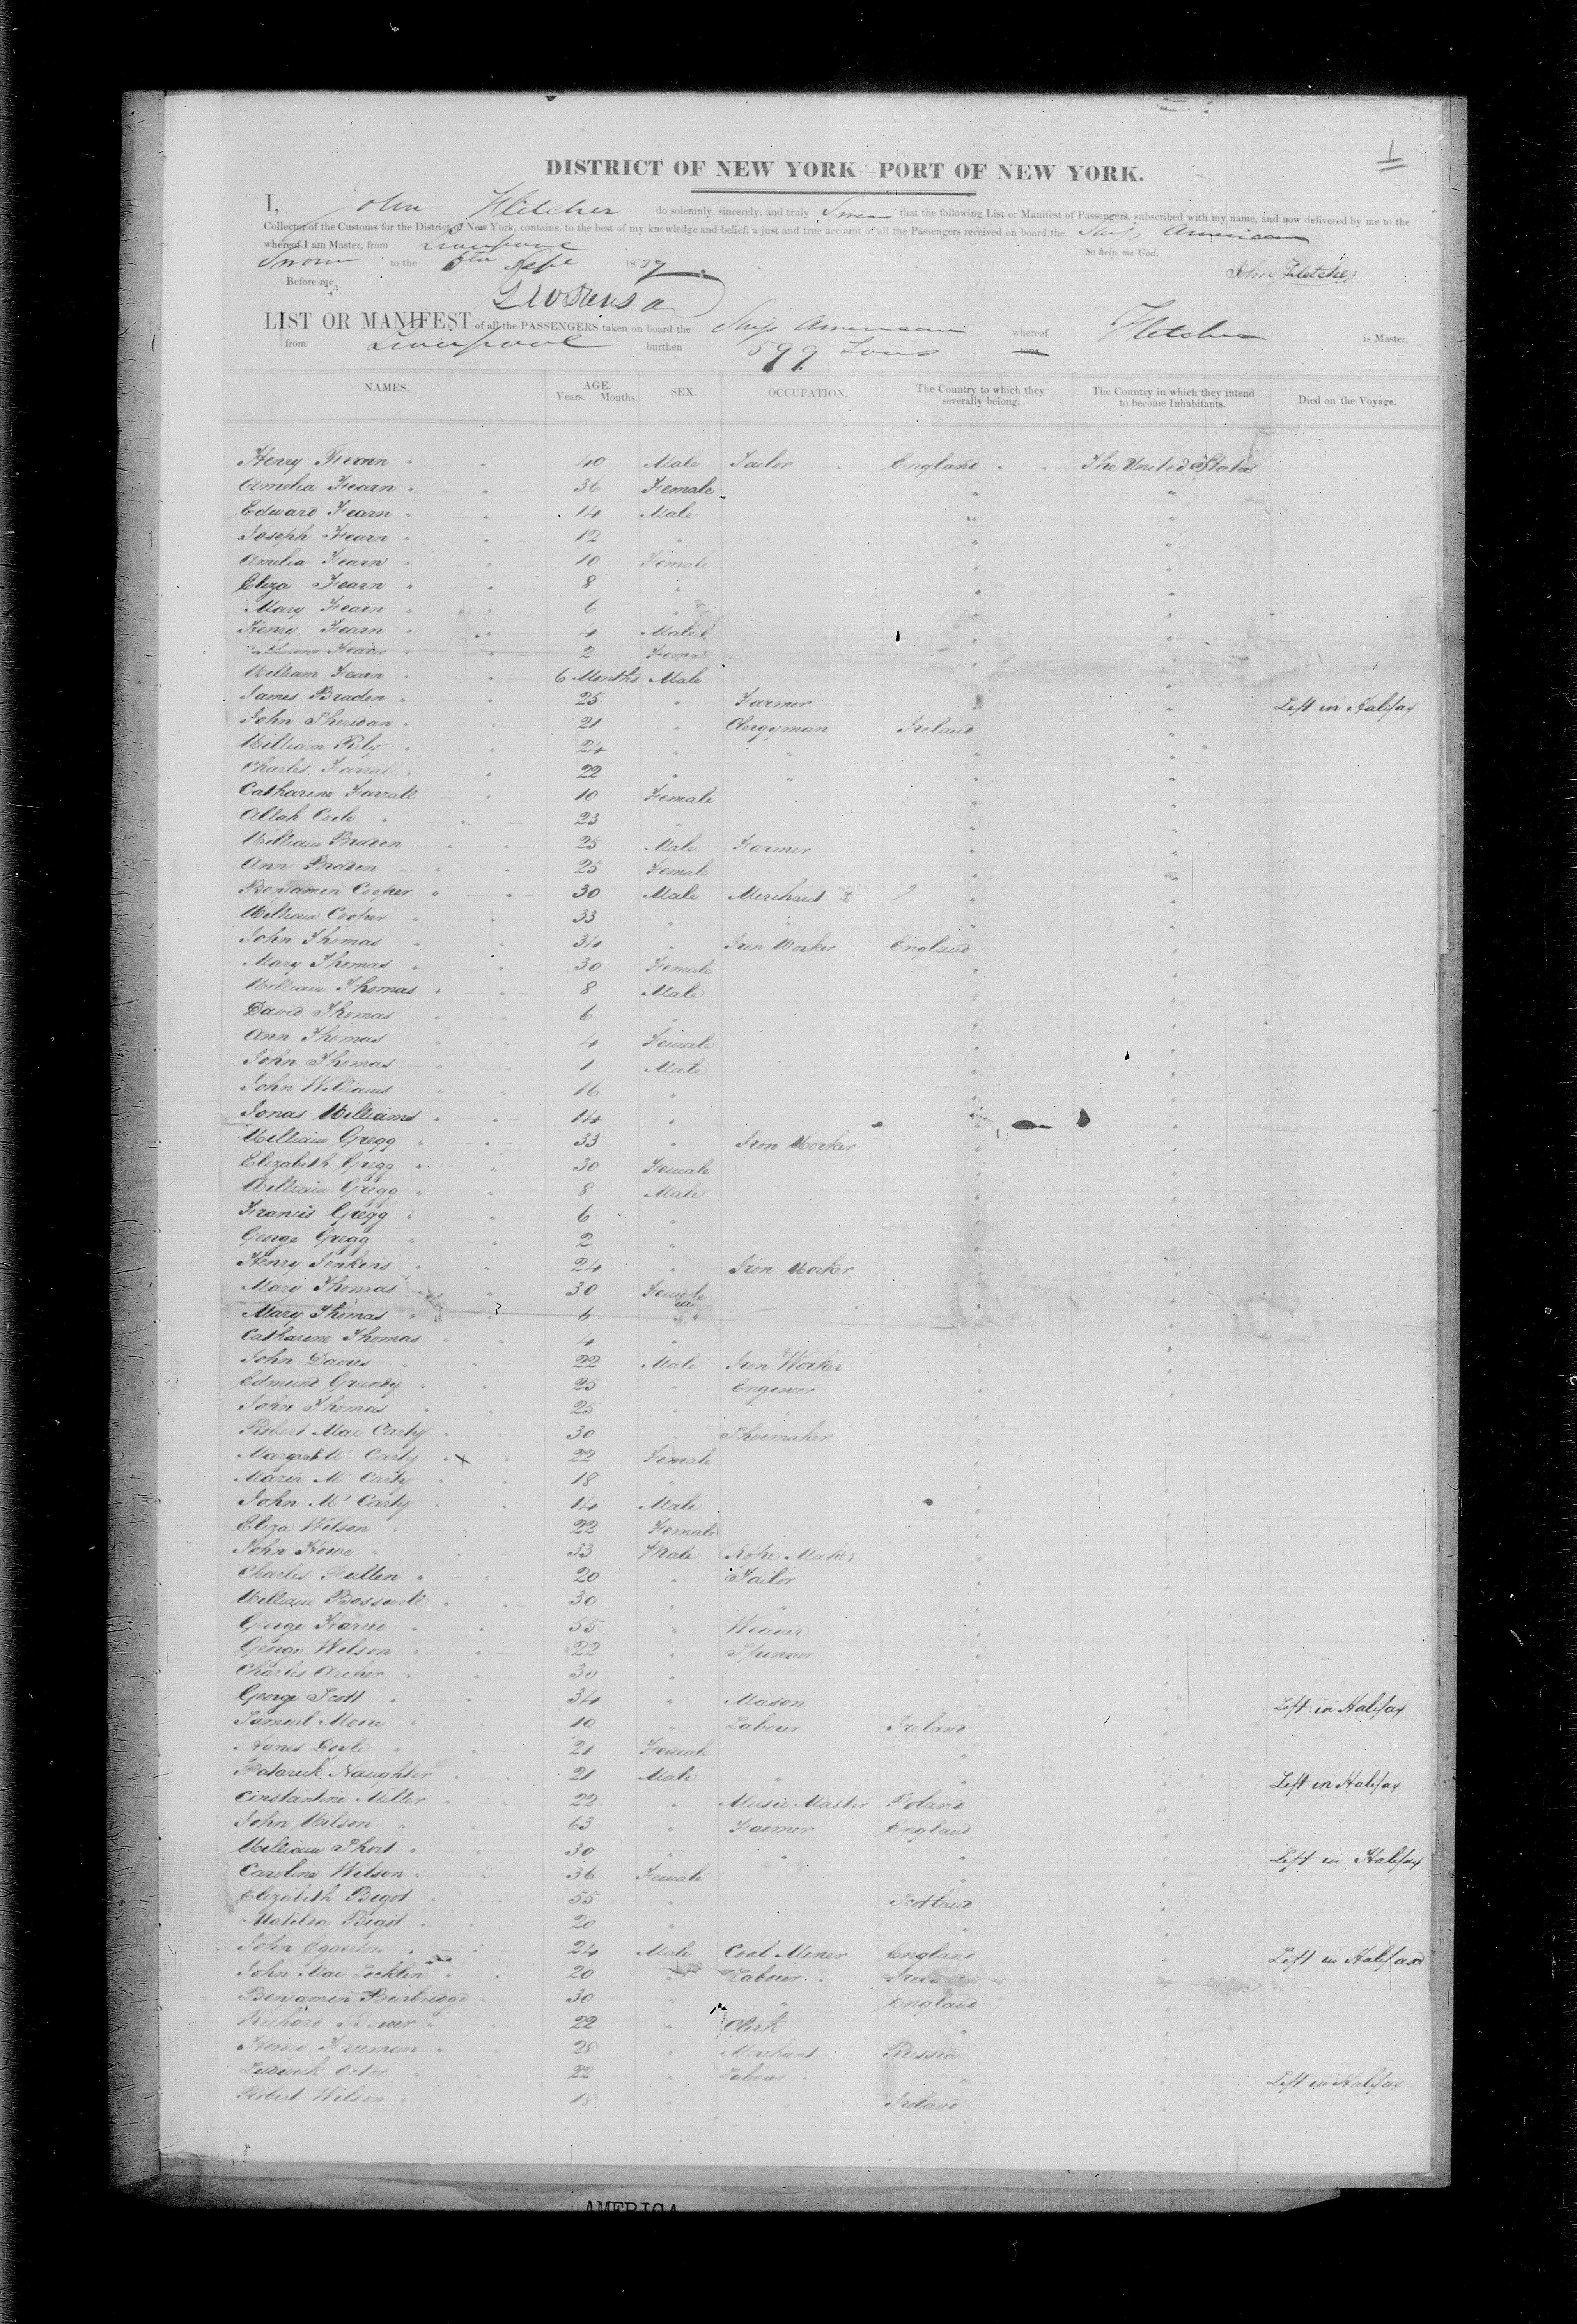 1
DISTRICT OF NEW YORK—PORT OF NEW YORK.
I, John Fletcher do solemnly, sincerely, and truly Swear that the following List or Manifest of Passengers, subscribed with my name, and now delivered by me to the
Collector of the Customs for the District of New York, contains, to the best of my knowledge and belief, a just and true account of all the Passengers received on board the Ship American
whereof I am Master, from Liverpool
Sworn to the Sept 1839 So help me God.
Before me John Fletcher
LIST OR MANIFEST of all the PASSENGERS taken on board the Ship American whereof Fletcher is Master,
from Liverpool burthen 599 Tons
NAMES. AGE. SEX. OCCUPATION. The Country to which they severally belong. The Country in which they intend to become Inhabitants. Died on the Voyage.
Years. Months.
Henry Fearn 40 Male Tailor England The United States
Amelia Fearn " 36 Female " "
Edward Fearn " 14 Male " "
Joseph Fearn " 12 " " "
Amelia Fearn " 10 Female " "
Eliza Fearn " 8 " " "
Mary Fearn " 6 " " "
Henry Fearn " 4 Male " "
Fearn " 2 Female " "
William Fearn " 6 Months Male "
James Braden " 25 " Farmer " " Left in Halifax
John Sheridan " 21 " Clergyman Ireland "
William Rily " 24 " " " "
Charles Farrall " 22 " " " "
Catharine Farrall " 10 Female " "
Allah " 23 " " "
William Braden " 25 Male Farmer " "
Ann Braden " 25 Female " "
Benjamin Cooper " 30 Male Merchant " "
William Cooper " 33 " " " "
John Thomas " 34 " Iron Worker England "
Mary Thomas " 30 Female " "
William Thomas " 8 Male " "
David Thomas " 6 " " "
Ann Thomas " 4 Female " "
John Thomas " 1 Male " "
John Williams " 16 " " "
Jonas Williams " 14 " " "
William Gregg " 33 " Iron Worker " "
Elizabeth Gregg " 30 Female " "
William Gregg " 8 Male " "
Francis Gregg " 6 " " "
George Gregg " 2 " " "
Henry Jenkins " 24 " Iron Worker " "
Mary Thomas 30 Female " "
Mary Thomas " 6 " " "
Catharine Thomas " 4 " " "
John Davies " 22 Male Iron Worker " "
Edmund Grundy " 25 " Engineer " "
John Thomas " 25 " " " "
Robert Mac Carty " 30 " Shoemaker " "
Margaret Mc Carty x 22 Female " "
Maria Mc Carty " 18 " " "
John Mc Carty " 14 Male " "
Eliza Wilson " 22 Female " "
John Howe " 33 Male Rope Maker " "
Charles Pullen " 20 " Tailor " "
William Bosswell " 30 " " " "
George " 55 " Weaver " "
George Wilson " 22 " Spinner " "
Charles Archer " 30 " " "
George Scott " 34 " Mason " " Left in Halifax
Samuel Moore " 10 " Labour Ireland "
Agnes Doyle " 21 Female " "
Naughter " 21 Male " " " Left in Halifax
Constantine Miller " 22 " Music Master Poland "
John Wilson " 63 " Farmer England "
William Short " 30 " " " " Left in Halifax
Caroline Wilson " 36 Female " "
Elizabeth Bigot " 55 " Scotland "
Matilda Bigot " 20 " " "
John " 24 Male Coal Miner England " Left in Halifax
John Mac Locklin " 20 " Labour "
Benjamin Burbridge 30 " " England "
Richard " 22 " Clerk " "
Henry Freeman " 28 " Merchant Russia "
22 " Labour " " Left in Halifax
Robert Wilson " 18 " " Ireland "
AMERICA